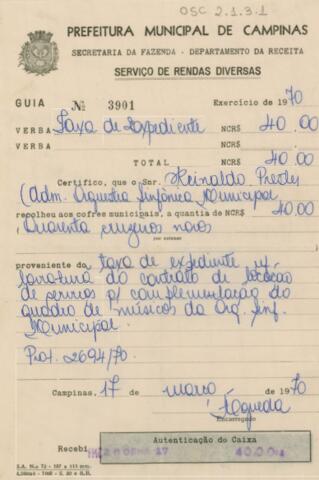 OSC 2.1.3.1
PREFEITURA MUNICIPAL DE CAMPINAS
SECRETARIA DA FAZENDA - DEPARTAMENTO DA RECEITA
SERVIÇO DE RENDAS DIVERSAS
GUIA Nº 3901 Exercício de 1970
VERBA Taxa de Expediente NCR$ 40.00
VERBA NCR$
TOTAL NCR$ 40.00
Certifico, que o Snr. Reinaldo Prestes
(Adm. Orquestra Sinfônica Municipal
recolheu aos cofres municipais, a quantia de NCR$ 40.00
Quarenta cruzeiros novos
por extenso
proveniente do taxa de expediente ref.
lavratura do contrato de locação
de serviços p/ complementação do
quadro de músicos da Orq. Sinf.
Municipal.
Prot. 2694/70.
Campinas, 17 de março de 1970
Encarregado
Autenticação do Caixa
Recebi 40.00